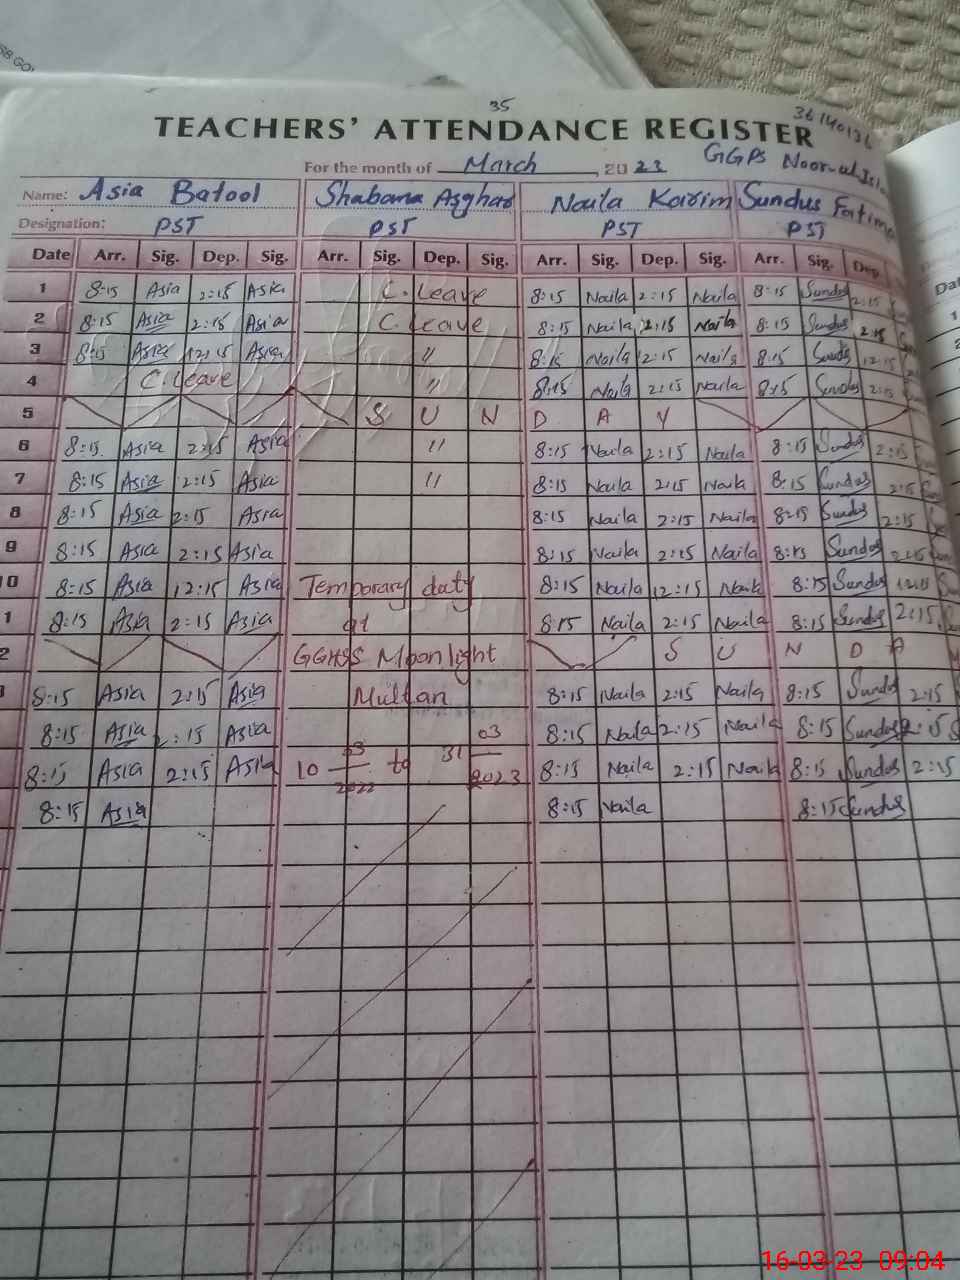 35
TEACHERS' ATTENDANCE REGISTER
For the month of March, 2023 GGPS
Name: Asia Batool Shabana Asghar Naila Karim Sundus Fatima
Designation: PST PST PST PST
Date Arr. Sig. Dep. Sig. Arr. Sig. Dep. Sig. Arr. Sig. Dep. Sig. Arr. Sig. Dep.
1 8:15 Asia 2:15 Asia C. Leave 8:15 Naila 2:15 Naila 8:15 Sundus 2:15
2 8:15 Asia 2:15 Asia C. Leave 8:15 Naila 2:15 Naila 8:15 Sundus 2:15
3 8:15 Asia 12:15 Asia " 8:15 Naila 12:15 Naila 8:15 Sundus 12:15
4 C. Leave " 8:15 Naila 2:15 Naila 8:15 Sundus 2:15
5 S U N D A Y
6 8:15 Asia 2:15 Asia " 8:15 Naila 2:15 Naila 8:15 Sundus 2:15
7 8:15 Asia 2:15 Asia " 8:15 Naila 2:15 Naila 8:15 Sundus 2:15
8 8:15 Asia 2:15 Asia 8:15 Naila 2:15 Naila 8:15 Sundus 2:15
9 8:15 Asia 2:15 Asia 8:15 Naila 2:15 Naila 8:15 Sundus 2:15
10 8:15 Asia 12:15 Asia Temporary duty 8:15 Naila 12:15 Naila 8:15 Sundus 12:15
1 8:15 Asia 2:15 Asia at 8:15 Naila 2:15 Naila 8:15 Sundus 2:15
2 GGHSS Moonlight S U N D A
8:15 Asia 2:15 Asia Multan 8:15 Naila 2:15 Naila 8:15 Sundus 2:15
8:15 Asia 2:15 Asia 8:15 Naila 2:15 Naila 8:15 Sundus 2:15
8:15 Asia 2:15 Asia 10 03 2022 to 31 03 2023 8:15 Naila 2:15 Naila 8:15 Sundus 2:15
8:15 Asia 8:15 Naila 8:15 Sundus
16-03-23 09:04